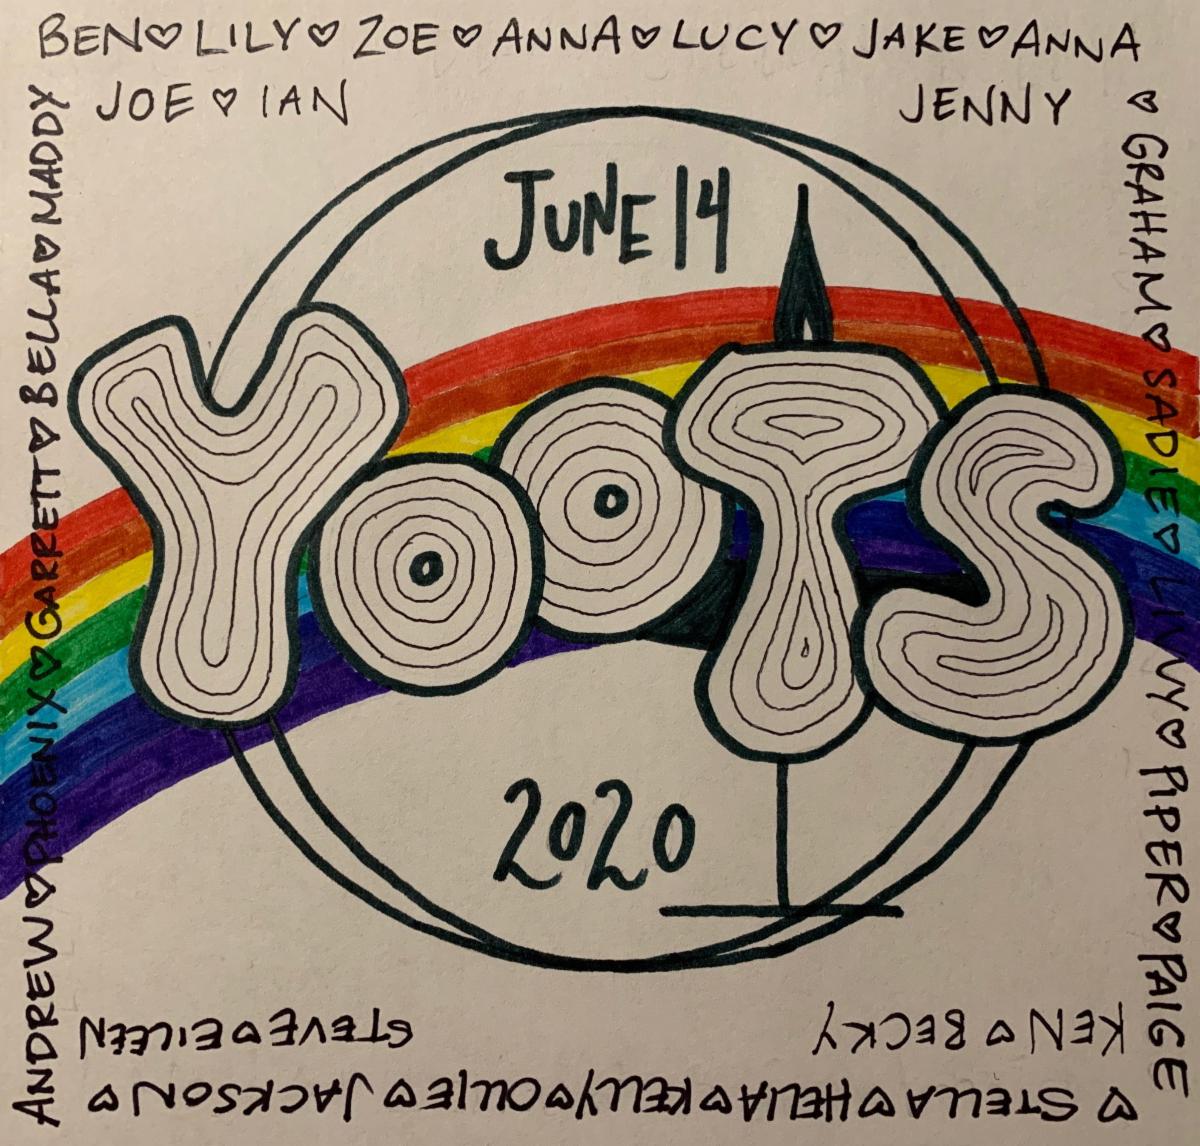 BEN♡LILY♡ZOE♡ANNA♡LUCY♡JAKE♡ANNA
JOE♡IAN
JENNY
♡GRAHAM♡SADIE♡LIVVY♡PIPER♡PAIGE
JUNE 14
YOOTS
2020
KEN♡BECKY
STEVE♡EILEEN
♡STELLA♡HELIA♡KELLY♡OLLIE♡JACKSON♡
ANDREW♡PHOENIX♡GARRETT♡BELLA♡MADDY